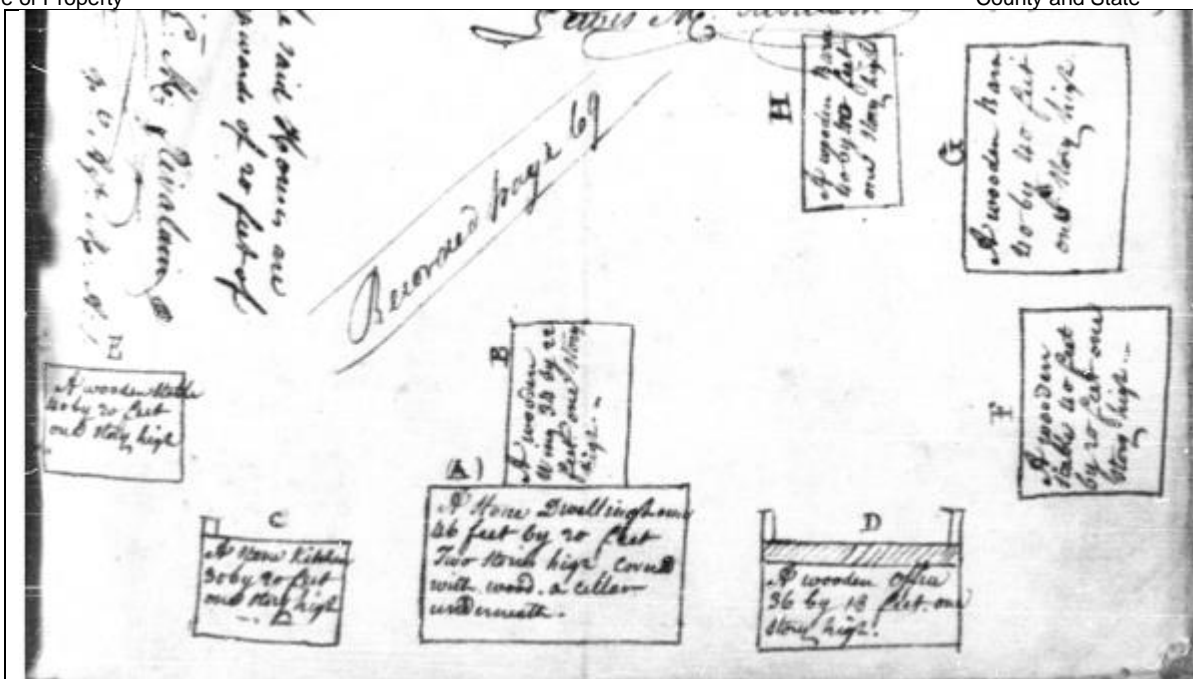 e of Property
County and State
a said Houses are
upwards of 20 feet of
Recorded page 69
H
A wooden Barn
40 by 40 feet
one Story high
G
A wooden Barn
40 by 40 feet
one Story high.
E
A wooden Stable
40 by 20 feet
one Story high
B
A wooden
Wing 34 by 22
feet one Story
high. –
F
A wooden
Stable 40 feet
by 20 feet one
Story high
(A)
A Stone Dwelling house
46 feet by 20 feet
Two Stories high, Coverd
with wood. a cellar
underneath.
C
A Stone Kitchen
30 by 20 feet
one Story high
D
A wooden office
36 by 18 feet. one
Story high.